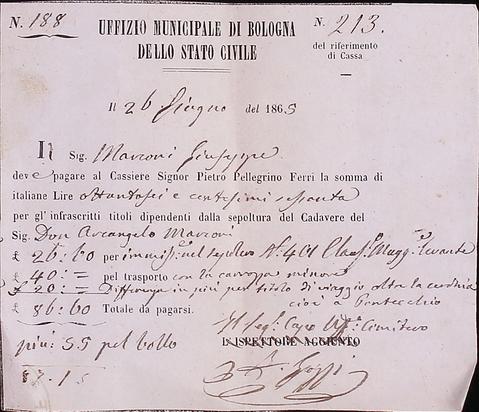 N. 188
UFFIZIO MUNICIPALE DI BOLOGNA
DELLO STATO CIVILE
N. 213.
del riferimento
di Cassa
Il 26 Giugno del 1865
Il Sig. Marconi Giuseppe
deve pagare al Cassiere Signor Pietro Pellegrino Ferri la somma di
italiane Lire ottantasei e centesimi sessanta
per gl'infrascritti titoli dipendenti dalla sepoltura del Cadavere del
Sig. Don Arcangelo Marconi
£ 26:60 per immis.ne nel sepolcro N.° 401 levante
£ 40:= pel trasporto con la carrozza minore
£ 20:= Differenza in più per titolo di viaggio oltre la
cioè a Pontecchio
£ 86:60 Totale da pagarsi.
Il Seg. Capo Uff. Cimitero
L'ISPETTORE AGGIUNTO
più: 55 pel bollo
87.15